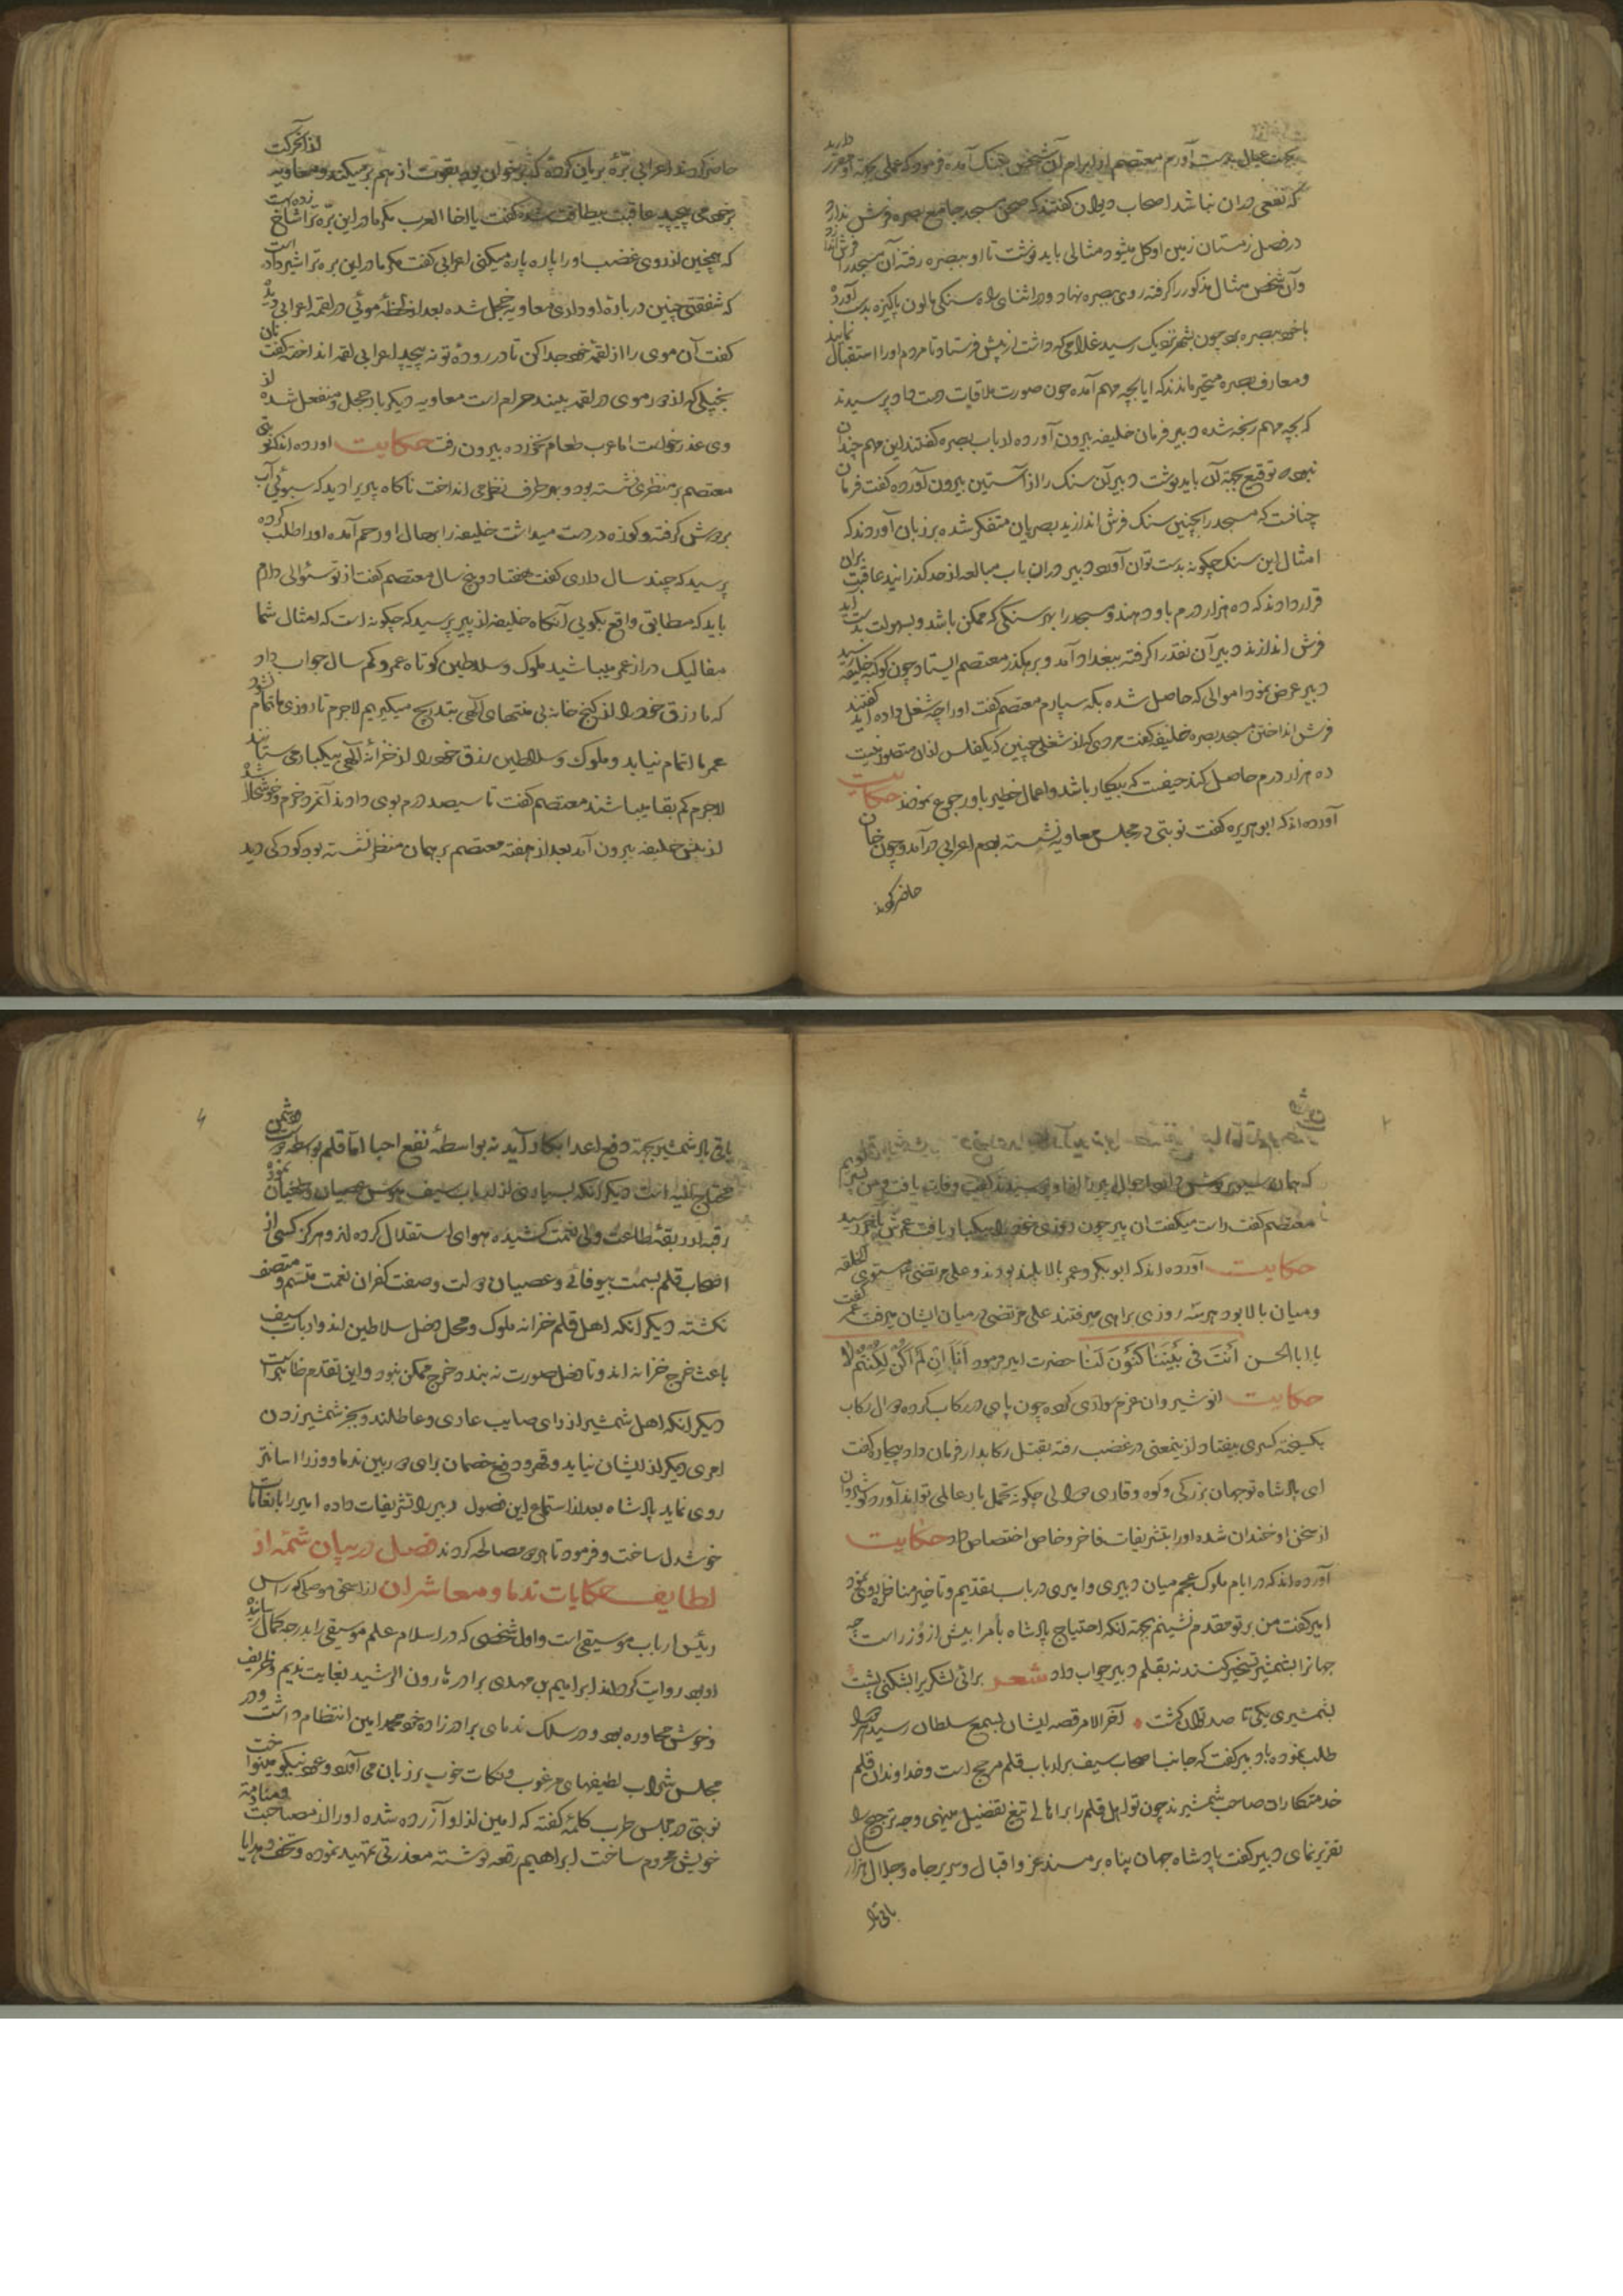 بجهت عیال بدست آورم معتصم از ابرام آن شخص بتنک آمده فرمود که عملی بجهة او مقرر دارید
که نفعی دران نباشد اصحاب دیوان کفتند که صحن مسجد جامع بصره فرش ندارد
در فصل زمستان زمین او کل میشود مثالی باید نوشت تا او ببصره رفته آن مسجد را فرش اندازد
وآن شخص مثال مذکور را کرفته روی ببصره نهاد ودر اثنای راه سنکی مالون پاکیزه بدست آورد
با خود ببصره برد چون بشهر نزدیک رسید غلامی که داشت از پیش فرستاد تا مردم اورا استقبال نمایند
ومعارف بصره متحیر ماندند که ایا بچه مهم آمده چون صورت ملاقات دست داد پرسیدند
که بچه مهم رنجه شده دبیر فرمان خلیفه بیرون آورده ارباب بصره کفتند این مهم چندان
نبود توقیع بجهة آن باید نوشت دبیر آن سنک را از آستین بیرون آورده کفت فرمان
چنانست که مسجد را بچنین سنک فرش اندازید بصریان متفکر شده بر زبان آوردند که
امثال این سنک چکونه بدست توان آورد دبیر دران باب مبالغه از حد کذرانید عاقبت بران
قرار دادند که ده هزار درم باو دهند ومسجد را بهر سنکی که ممکن باشد وبسهولت بدست آید
فرش اندازند دبیر آن نقد را کرفته ببغداد آمد وبر رهکذر معتصم ایستاد چون کوکبه خلیفه رسید
دبیر عرض نمود اموالی که حاصل شده بکه سپارم معتصم کفت اورا چه شغل داده اید کفتند
فرش انداختن مسجد بصره خلیفه کفت مردی که از شغلی چنین که یکفلس ازان متصور نیست
ده هزار درم حاصل کند حیفست که بیکار باشد واعمال خطیر باو رجوع نمودند حکایت
آورده اند که ابو هریره کفت نوبتی در مجلس معاویه نشسته بودم اعرابی در آمد وچون خوان
حاضر کردند
حاضر کردند اعرابی برّهٔ بریان کرده که بر خوان بود بقوت از هم بر میکند ومعاویه از آن حرکت
بر خود می پیچید عاقبت بیطاقت شده کفت یا اخا العرب مکر مادر این برّه ترا شاخ زده است
که همچنین از روی غضب اورا پاره پاره میکنی اعرابی کفت مکر مادر این بره ترا شیر داده است
که شفقتی چنین در بارهٔ او داری معاویه خجل شده بعد از لحظهٔ موئی در لقمه اعرابی دید
کفت آن موی را از لقمهٔ خود جدا کن تا در رودهٔ تو نه پیچد اعرابی لقمه انداخته کفت نان
بخیلی که از دور موی در لقمه بیند حرام است معاویه دیکر بار خجل ومنفعل شده از
وی عذر خواست اما عرب طعام نخورده بیرون رفت حکایت اورده اند که نوبتی
معتصم بر منظری نشسته بود وبهر طرف نظر می انداخت ناکاه پیریرا دید که سبوئی آب
بر دوش کرفته وکوزه در دست میداشت خلیفه را بر حال او رحم آمده اورا طلب کرده
پرسید که چند سال داری کفت هفتاد وپنج سال معتصم کفت از تو سئوالی دارم
باید که مطابق واقع بکویی آنکاه خلیفه از پیر پرسید که چکونه است که امثال شما
مفالیک دراز عمر میباشید وملوک وسلاطین کوتاه عمر وکم سال جواب داد
که ما رزق خود را از کنج خانه بی منتهای آلهی بتدریج میکیریم لاجرم تا روزی ما تمام نشود
عمر ما اتمام نیابد وملوک وسلاطین رزق خود را از خزانهٔ آلهی بیکبار می ستانند
لاجرم کم بقا میباشند معتصم کفت تا سیصد درم بوی دادند آنمرد خرم وخوشحال شده
از پیش خلیفه بیرون آمد بعد از هفته معتصم بر همان منظر نشسته بود کودکی دید
که همان سبو بر دوش داشت احوال پیر را ازو پرسید کفت وفات یافت ومن پسر اویم
معتصم کفت راست میکفت آن پیر چون روزی خود را بیکبار یافت عمرش بآخر رسید
حکایت آورده اند که ابوبکر وعمر بالا بلند بودند وعلی مرتضی مستوی الخلقه
ومیان بالا بود هر سه روزی براهی میرفتند علی مرتضی در میان ایشان میرفت عمر کفت
یا ابا الحسن اَنتَ فی بَیْنَنَا کَنُونِ لَنَا حضرت امیر فرمود اَنَا اِنْ لَمْ اَکُنْ لَکُنْتُمْ لَا
حکایت انوشیروان عزم سواری کرده چون پای در رکاب کرده دوال رکاب
بکسیخته کسری بیفتاد از ینمعنی در غضب رفته بقتل رکابدار فرمان داد بیچاره کفت
ای پادشاه تو جهان بزرکی وکوه وقاری دوالی چکونه تحمل بار عالمی تواند آورد نوشیروان
از سخن او خندان شده اورا بتشریفات فاخر وخاص اختصاص داد حکایت
آورده اند که در ایام ملوک عجم میان دبیری وامیری در باب تقدیم وتأخیر مناظره روی نمود
امیر کفت من بر تو مقدم نشینم بجهة آنکه احتیاج پادشاه بامرا بیش از وزراست چه
جهانرا بشمشیر تسخیر کنند نه بقلم دبیر جواب داد شعر برائی لشکریرا بشکنی پشت
بشمشیری یکی تا صد توان کشت آخر الامر قصه ایشان بسمع سلطان رسید هر دو را
طلب نموده با دبیر کفت که جانب اصحاب سیف بر ارباب قلم مرجح است وخداوندان قلم
خدمتکاران صاحب شمشیرند چون تو اهل قلم را بر اهالی تیغ تفضیل مینهی وجه ترجیح را
تقریر نمای دبیر کفت پادشاه جهان پناه بر مسند عز واقبال وسریر جاه وجلال هزار سال
باقی بماد
باقی باد شمشیر بجهة دفع اعدا بکار آید نه بواسطهٔ نفع احبا امّا قلم بواسطه دوست ودشمن
محتاج الیه است دیکر انکه بسیاری از ارباب سیف هوس عصیان وطغیان نموده
رقبه از ربقهٔ طاعت ولی نعمت کشیده هوای استقلال کرده اند وهرکز کسی از
اصحاب قلم بسمت بیوفائی وعصیان دولت وصفت کفران نعمت متسم ومتصف
نکشته دیکر انکه اهل قلم خزانه ملوک ومحل دخل سلاطین اند وارباب سیف
باعث خرج خزانه اند وتا دخل صورت نه بندد خرج ممکن نبود واین تقدم ظاهر است
دیکر انکه اهل شمشیر از رای صایب عاری وعاطلند وبجز شمشیر زدن
امری دیکر از ایشان نیاید وقهر ودفع خصمان برای دوربین ندما ووزرا اسانتر
روی نماید پادشاه بعد از استماع این فصول دبیر را تشریفات داده امیر را بانعامات
خوشدل ساخت وفرمود تا هر دو مصالحه کردند فصل در بیان شمّهٔ از
لطایف حکایات ندما ومعاشران از اسحق موصلی که راس
رئیس ارباب موسیقی است واول شخصی که در اسلام علم موسیقی را بدرجه کمال رسانیده
او بود روایت کرده اند ابراهیم بن مهدی برادر هارون الرشید بغایت ندیم وظریف
وخوش محاوره بود ودر سلک ندمای برادر زاده خود محمد امین انتظام داشت ودر
مجلس شراب لطیفهای مرغوب ونکات خوب بر زبان می آورد وعود نیکو مینواخت
نوبتی در مجلس طرب کلمهٔ کفته که امین ازو آزرده شده اورا از مصاحبت ومنادمة
خویش محروم ساخت ابراهیم رقعه نوشته معذرتی تمهید نموده وتحف وهدایا